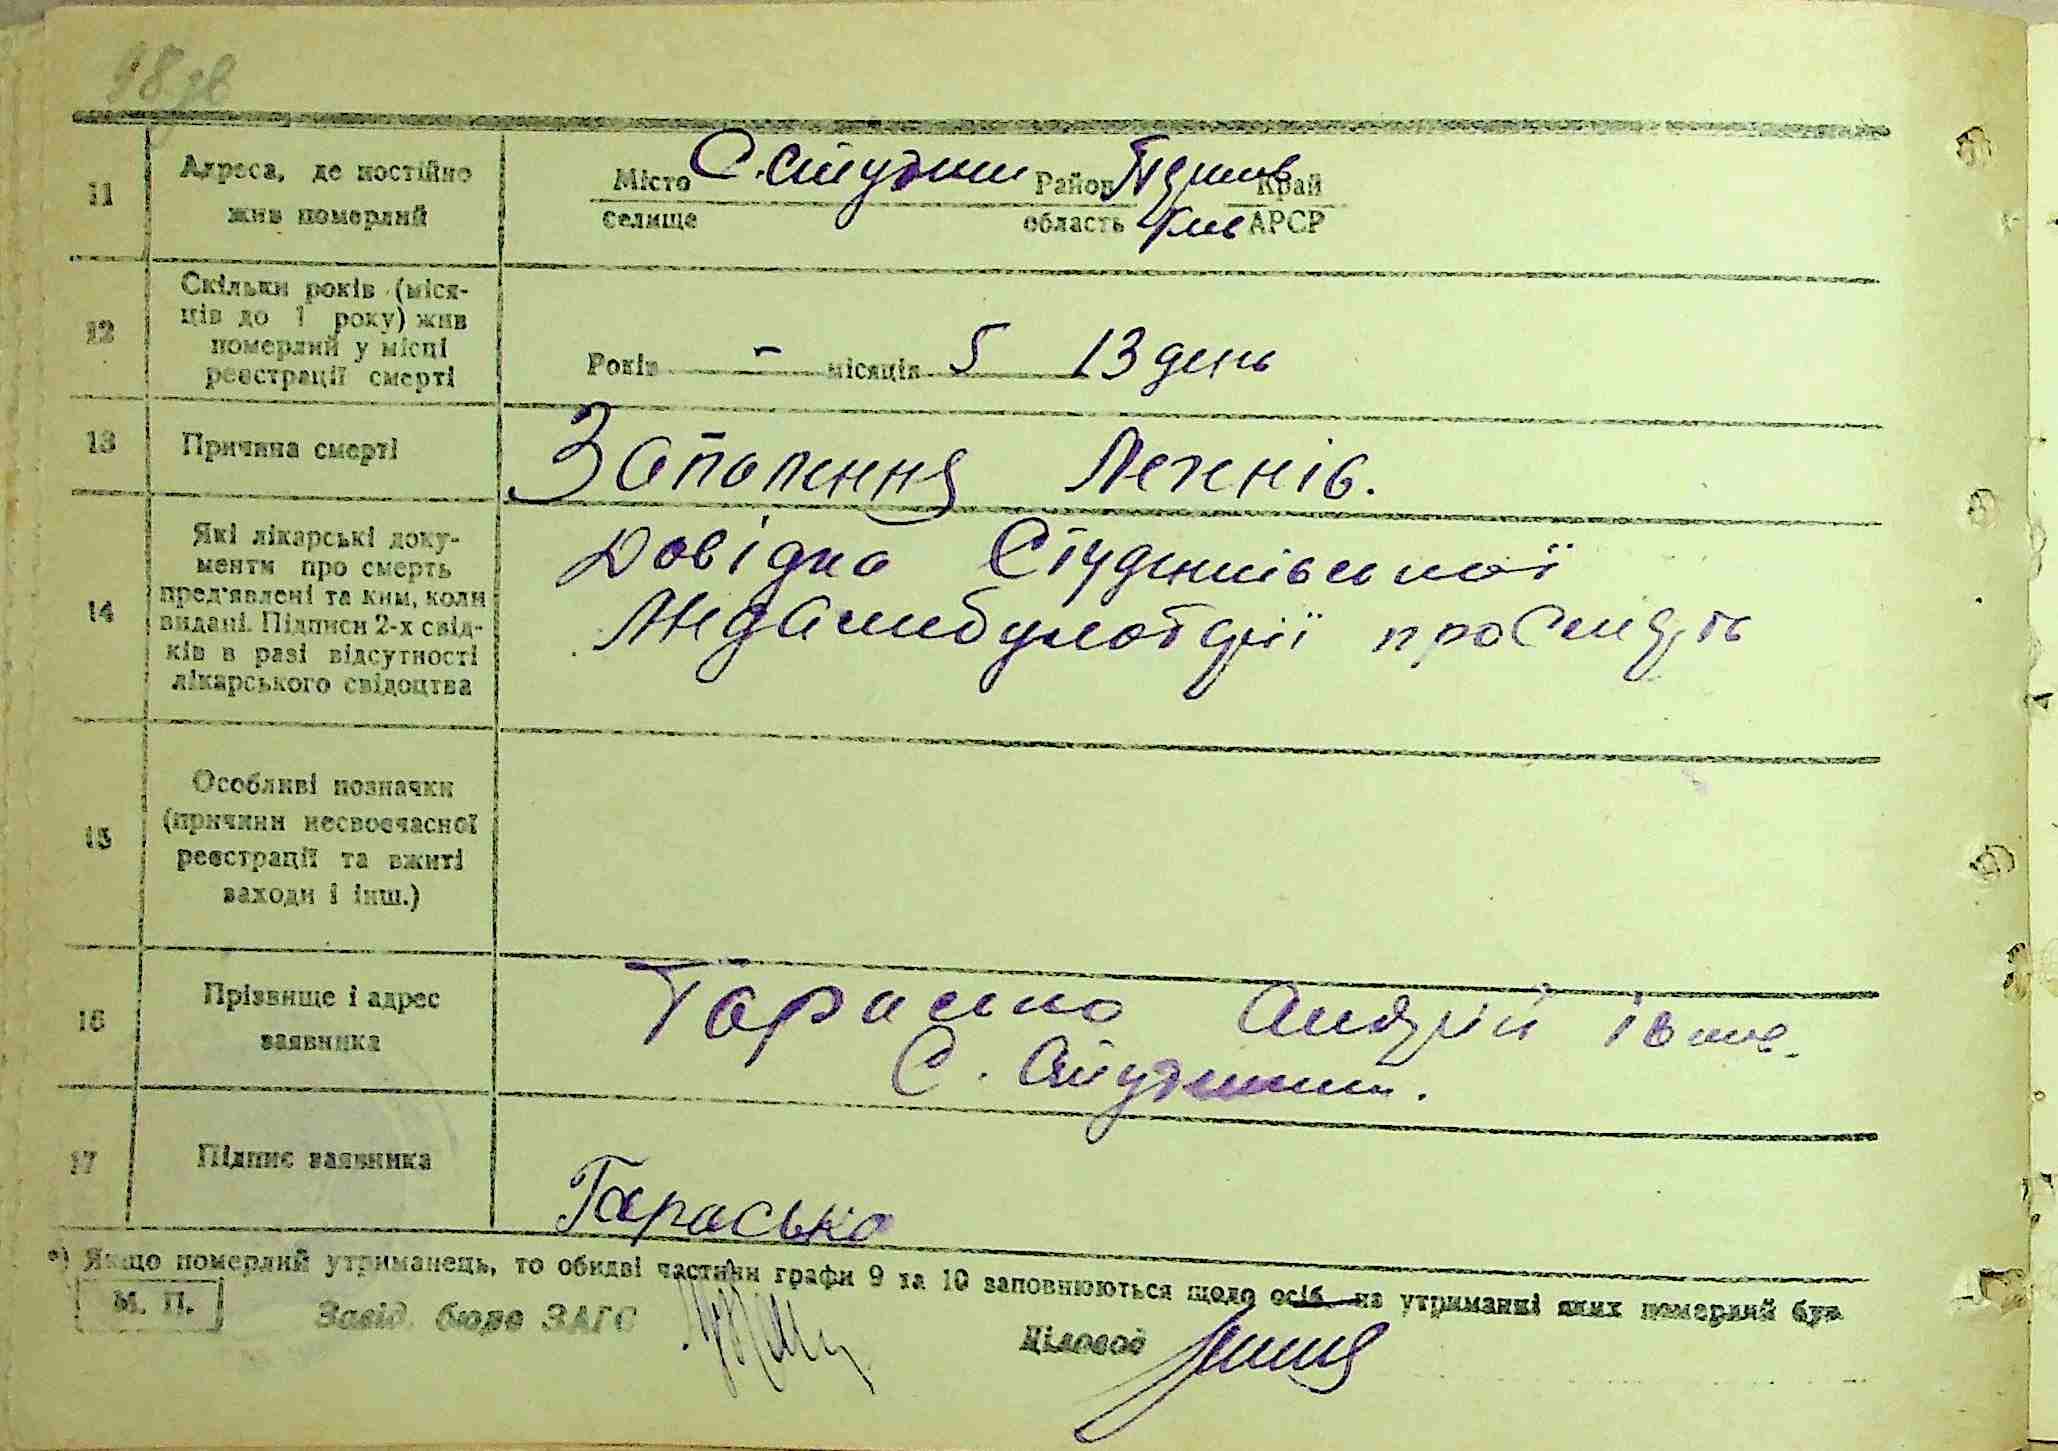 98 зв
11
Адреса, де постійно
жив померлий
Місто С. Студени Район Край
селище область Київ АРСР
12
Скільки років (міся-
ців до 1 року) жив
померлий у місці
реєстрації смерті
Років - місяців 5 13 день
13
Причина смерті
Запалення Легенів.
14
Які лікарські доку-
менти про смерть
пред'явлені та ким, коли
видані. Підписи 2-х свід-
ків в разі відсутності
лікарського свідоцтва
Довідка Студениківської
про смерть
15
Особливі позначки
(причини несвоєчасної
реєстрації та вжиті
заходи і інш.)
16
Прізвище і адрес
заявника
Тарасько Андрій Іван.
С. Студеники.
17
Підпис заявника
Тарасько
*) Якщо померлий утриманець, то обидві частини графи 9 та 10 заповнюються щодо осіб на утриманні яких померлий був
М. П.
Завід. бюро ЗАГС
Діловод